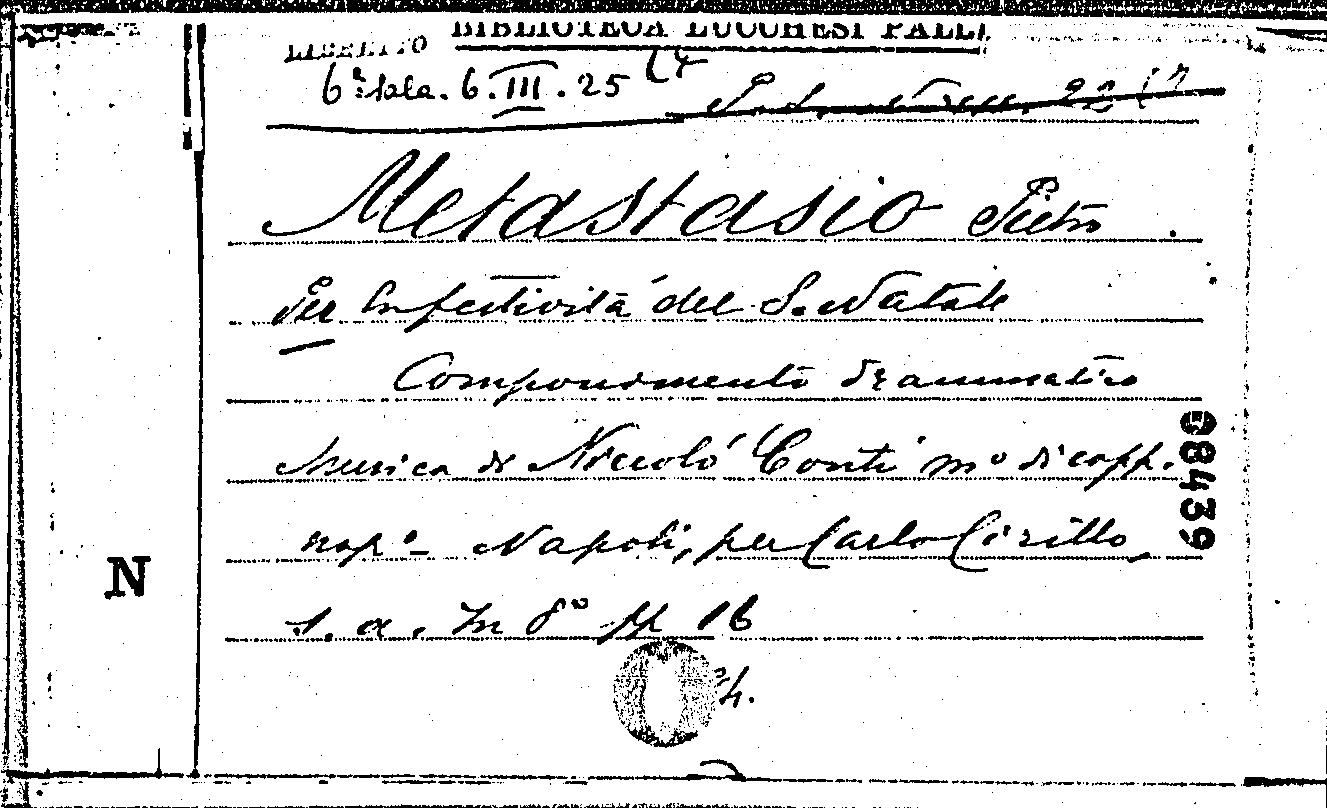 LIBRETTO BIBLIOTECA LUCCHESI PALLI
6ª Sala. 6. III. 25 (7
22 (7
Metastasio Pietro.
Per la festività del S. Natale
Componimento drammatico
Musica di Niccolò Conti mº di capp.
napº - Napoli, per Carlo Cirillo,
s. a. In 8º pp 16
68439
N